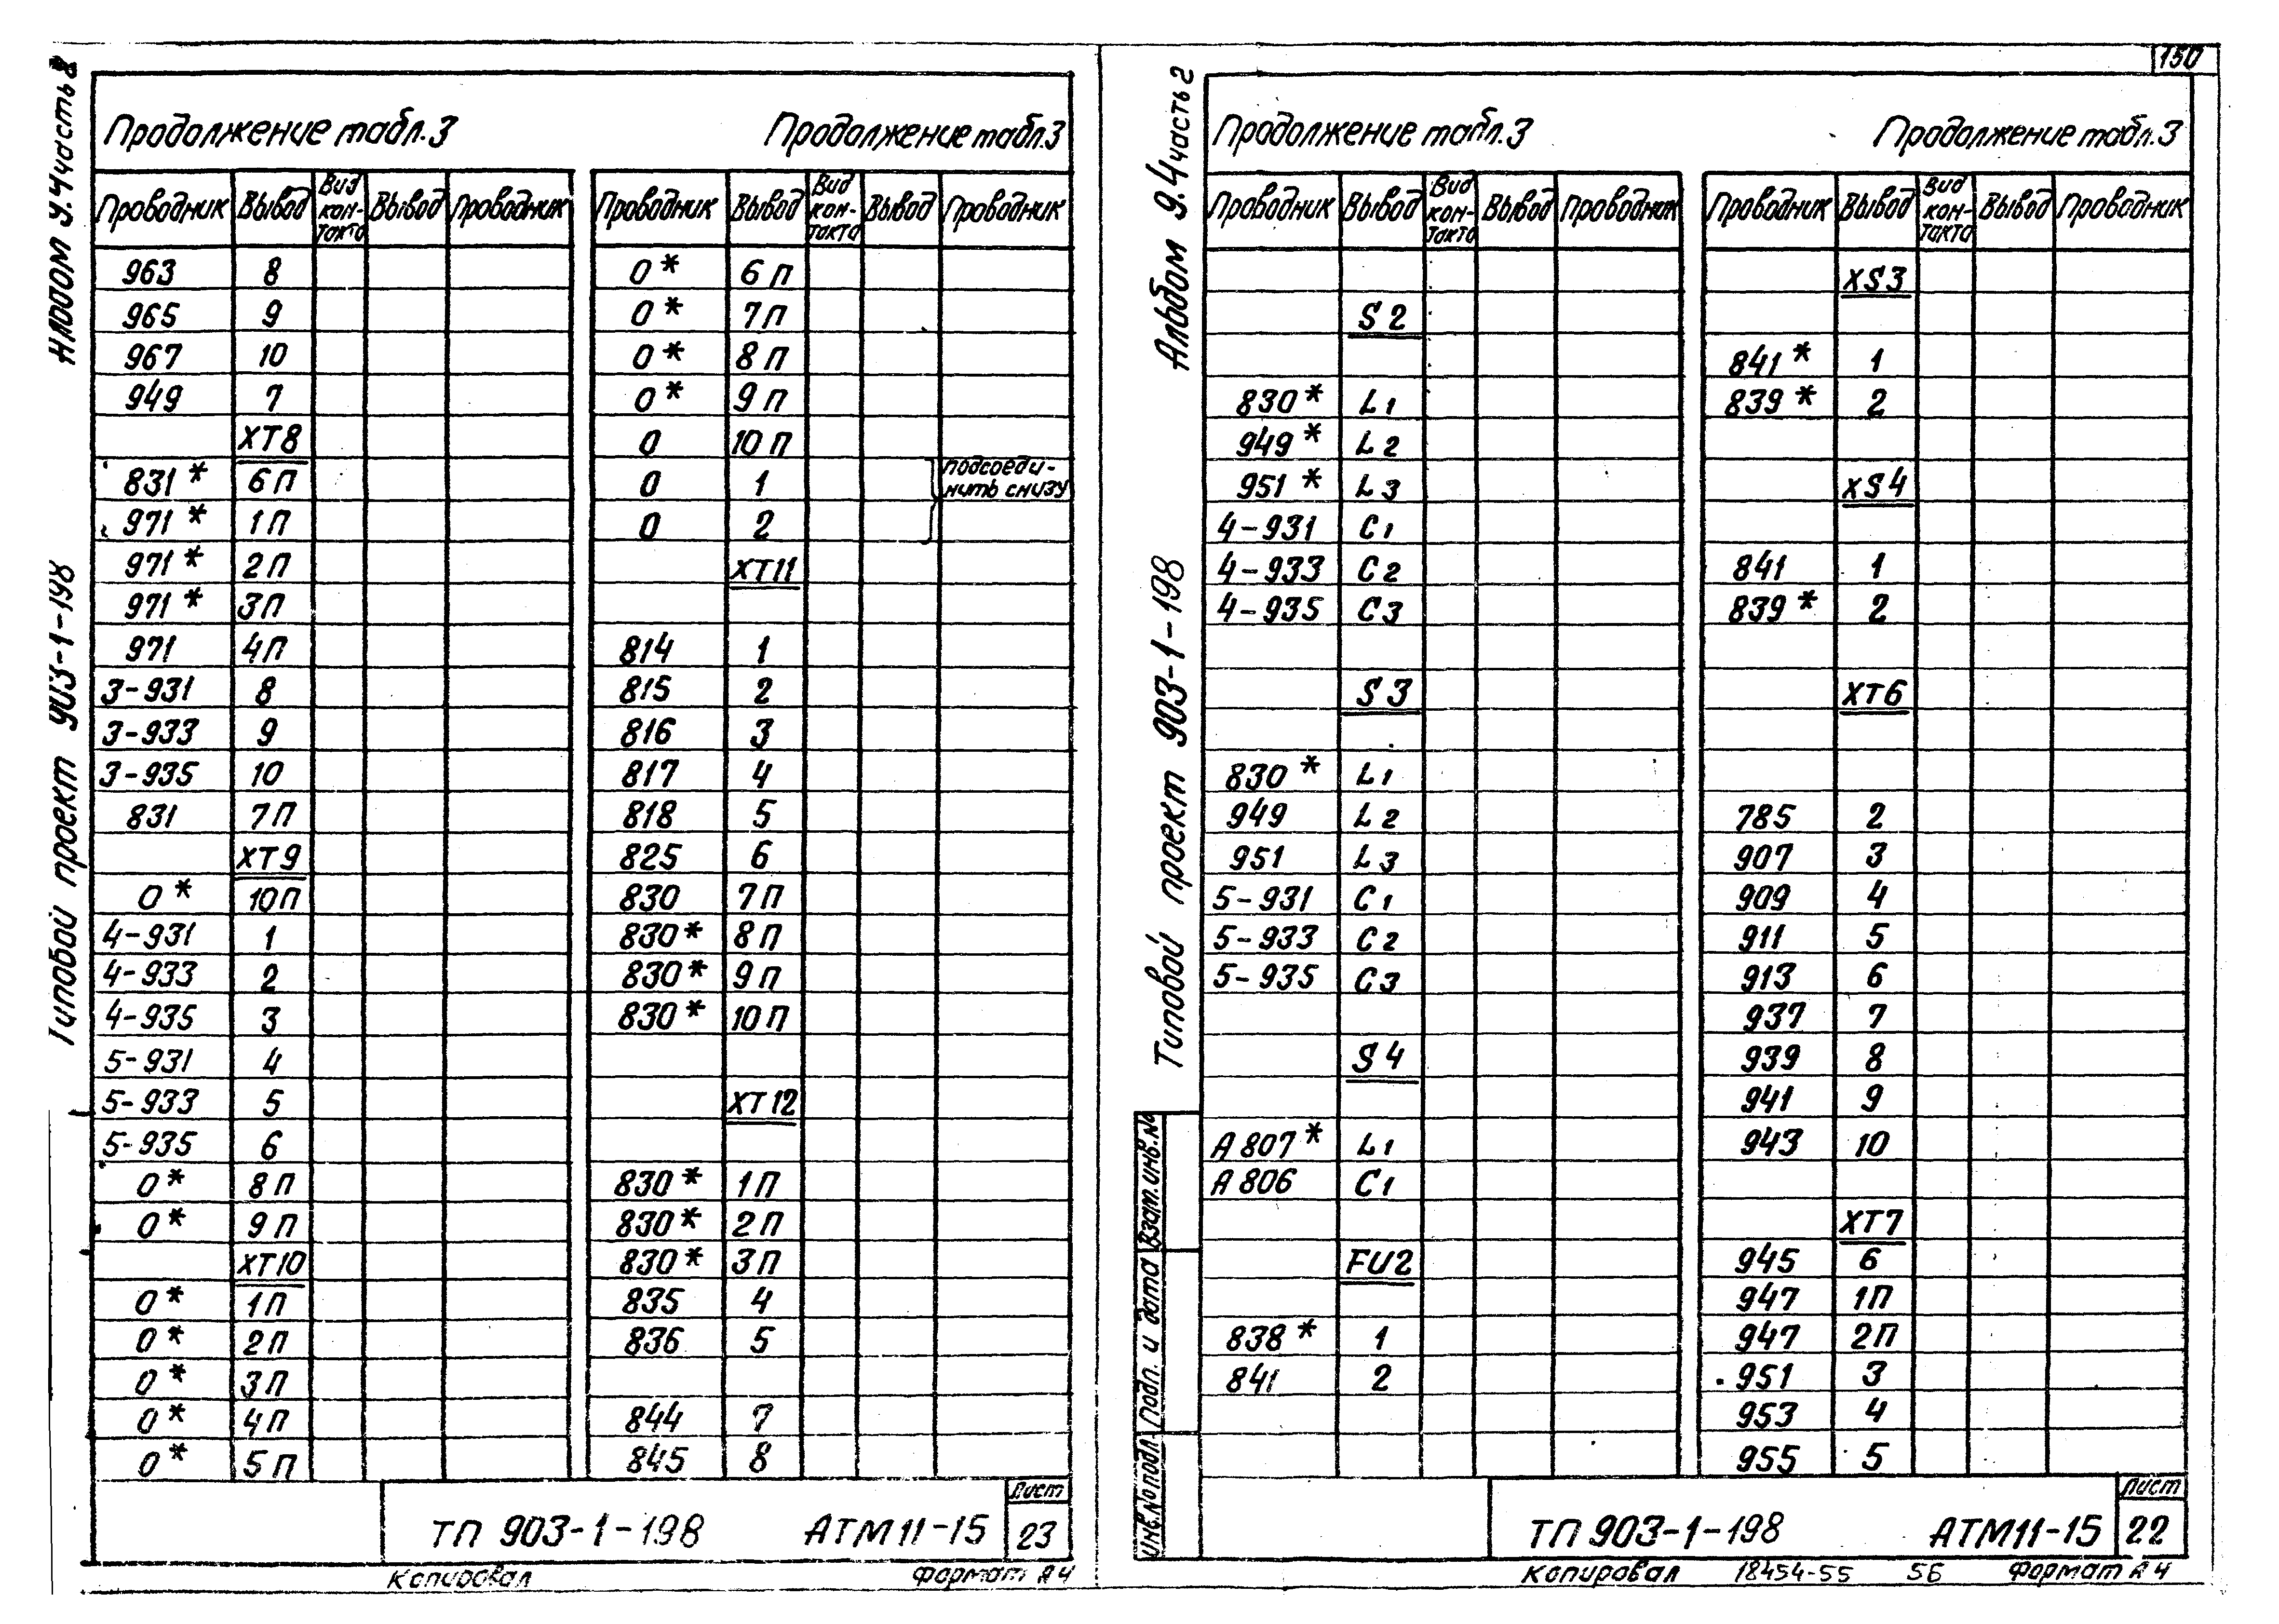 Альбом 9.4 часть 2
Типовой проект 903-1-198
Продолжение табл.3
Продолжение табл.3
Проводник Вывод Вид кон-такта Вывод Проводник
963 8
965 9
967 10
949 7
XT8
831* 6П
971* 1П
971* 2П
971* 3П
971 4П
3-931 8
3-933 9
3-935 10
831 7П
XT9
0* 10П
4-931 1
4-933 2
4-935 3
5-931 4
5-933 5
5-935 6
0* 8П
0* 9П
XT10
0* 1П
0* 2П
0* 3П
0* 4П
0* 5П
Проводник Вывод Вид кон-такта Вывод Проводник
0* 6П
0* 7П
0* 8П
0* 9П
0 10П
0 1 подсоеди-
0 2 нить снизу
XT11
814 1
815 2
816 3
817 4
818 5
825 6
830 7П
830* 8П
830* 9П
830* 10П
XT12
830* 1П
830* 2П
830* 3П
835 4
836 5
844 7
845 8
ТП 903-1-198 АТМ11-15
Лист
23
Копировал Формат А4
150
Альбом 9.4 часть 2
Типовой проект 903-1-198
Продолжение табл.3
Продолжение табл.3
Проводник Вывод Вид кон-такта Вывод Проводник
S2
830* L1
949* L2
951* L3
4-931 C1
4-933 C2
4-935 C3
S3
830* L1
949 L2
951 L3
5-931 C1
5-933 C2
5-935 C3
S4
А807* L1
А806 C1
FU2
838* 1
841 2
Проводник Вывод Вид кон-такта Вывод Проводник
XS3
841* 1
839* 2
XS4
841 1
839* 2
XT6
785 2
907 3
909 4
911 5
913 6
937 7
939 8
941 9
943 10
XT7
945 6
947 1П
947 2П
951 3
953 4
955 5
Инв.№ подл. Подп. и дата Взам. инв.№
ТП 903-1-198 АТМ11-15
Лист
22
Копировал 18454-55 56 Формат А4